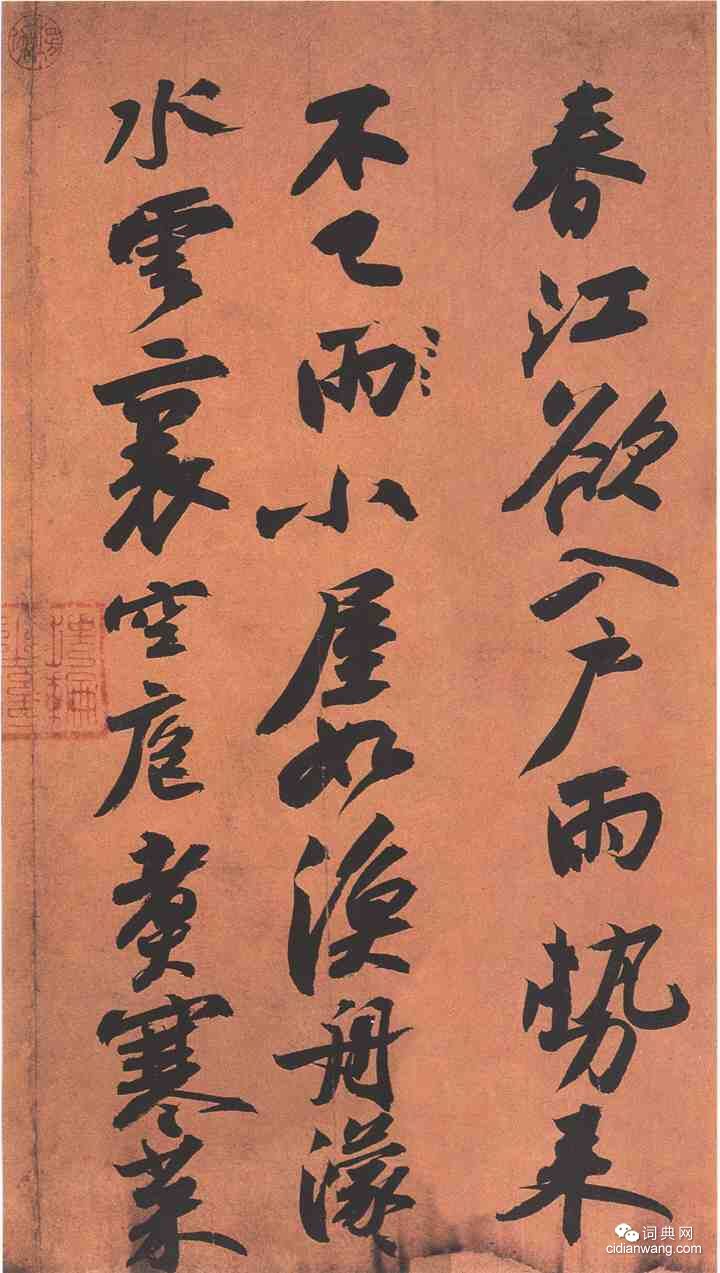 春江欲入戶雨勢来
不已雨小屋如漁舟濛〻
水雲裏空庖煮寒菜
词典网
cidianwang.com